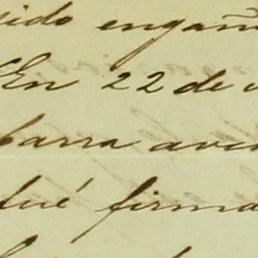 sido engañ
En 22 de
barra av
tué firma